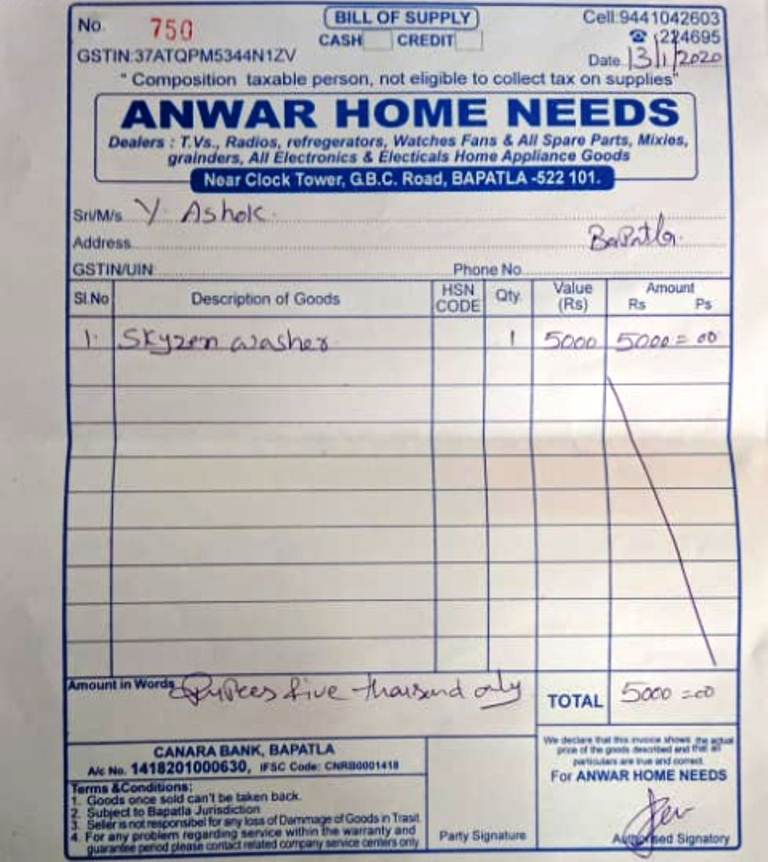 No. 750
BILL OF SUPPLY
Cell:9441042603
CASH CREDIT
☎ :224695
GSTIN:37ATQPM5344N1ZV
Date 13/1/2020
" Composition taxable person, not eligible to collect tax on supplies"
ANWAR HOME NEEDS
Dealers : T.Vs., Radios, refregerators, Watches Fans & All Spare Parts, Mixies,
grainders, All Electronics & Electicals Home Appliance Goods
Near Clock Tower, G.B.C. Road, BAPATLA -522 101.
Sri/M/s Y Ashok
Address Bapatla.
GSTIN/UIN Phone No
Sl.No Description of Goods HSN CODE Qty. Value (Rs) Amount Rs Ps
1. Skyzen washer 1 5000 5000=00
Amount in Words Rupees five thousand only
TOTAL 5000=00
CANARA BANK, BAPATLA
A/c No. 1418201000630, IFSC Code: CNRB0001418
Terms &Conditions:
1. Goods once sold can't be taken back.
2. Subject to Bapatla Jurisdiction
3. Seller is not responsibel for any loss of Dammage of Goods in Trasit
4. For any problem regarding service within the warranty and
guarantee period please contact related company service centers only
Party Signature
We declare that this invoice shows the actual
price of the goods described and that all
particulars are true and correct.
For ANWAR HOME NEEDS
Authorised Signatory